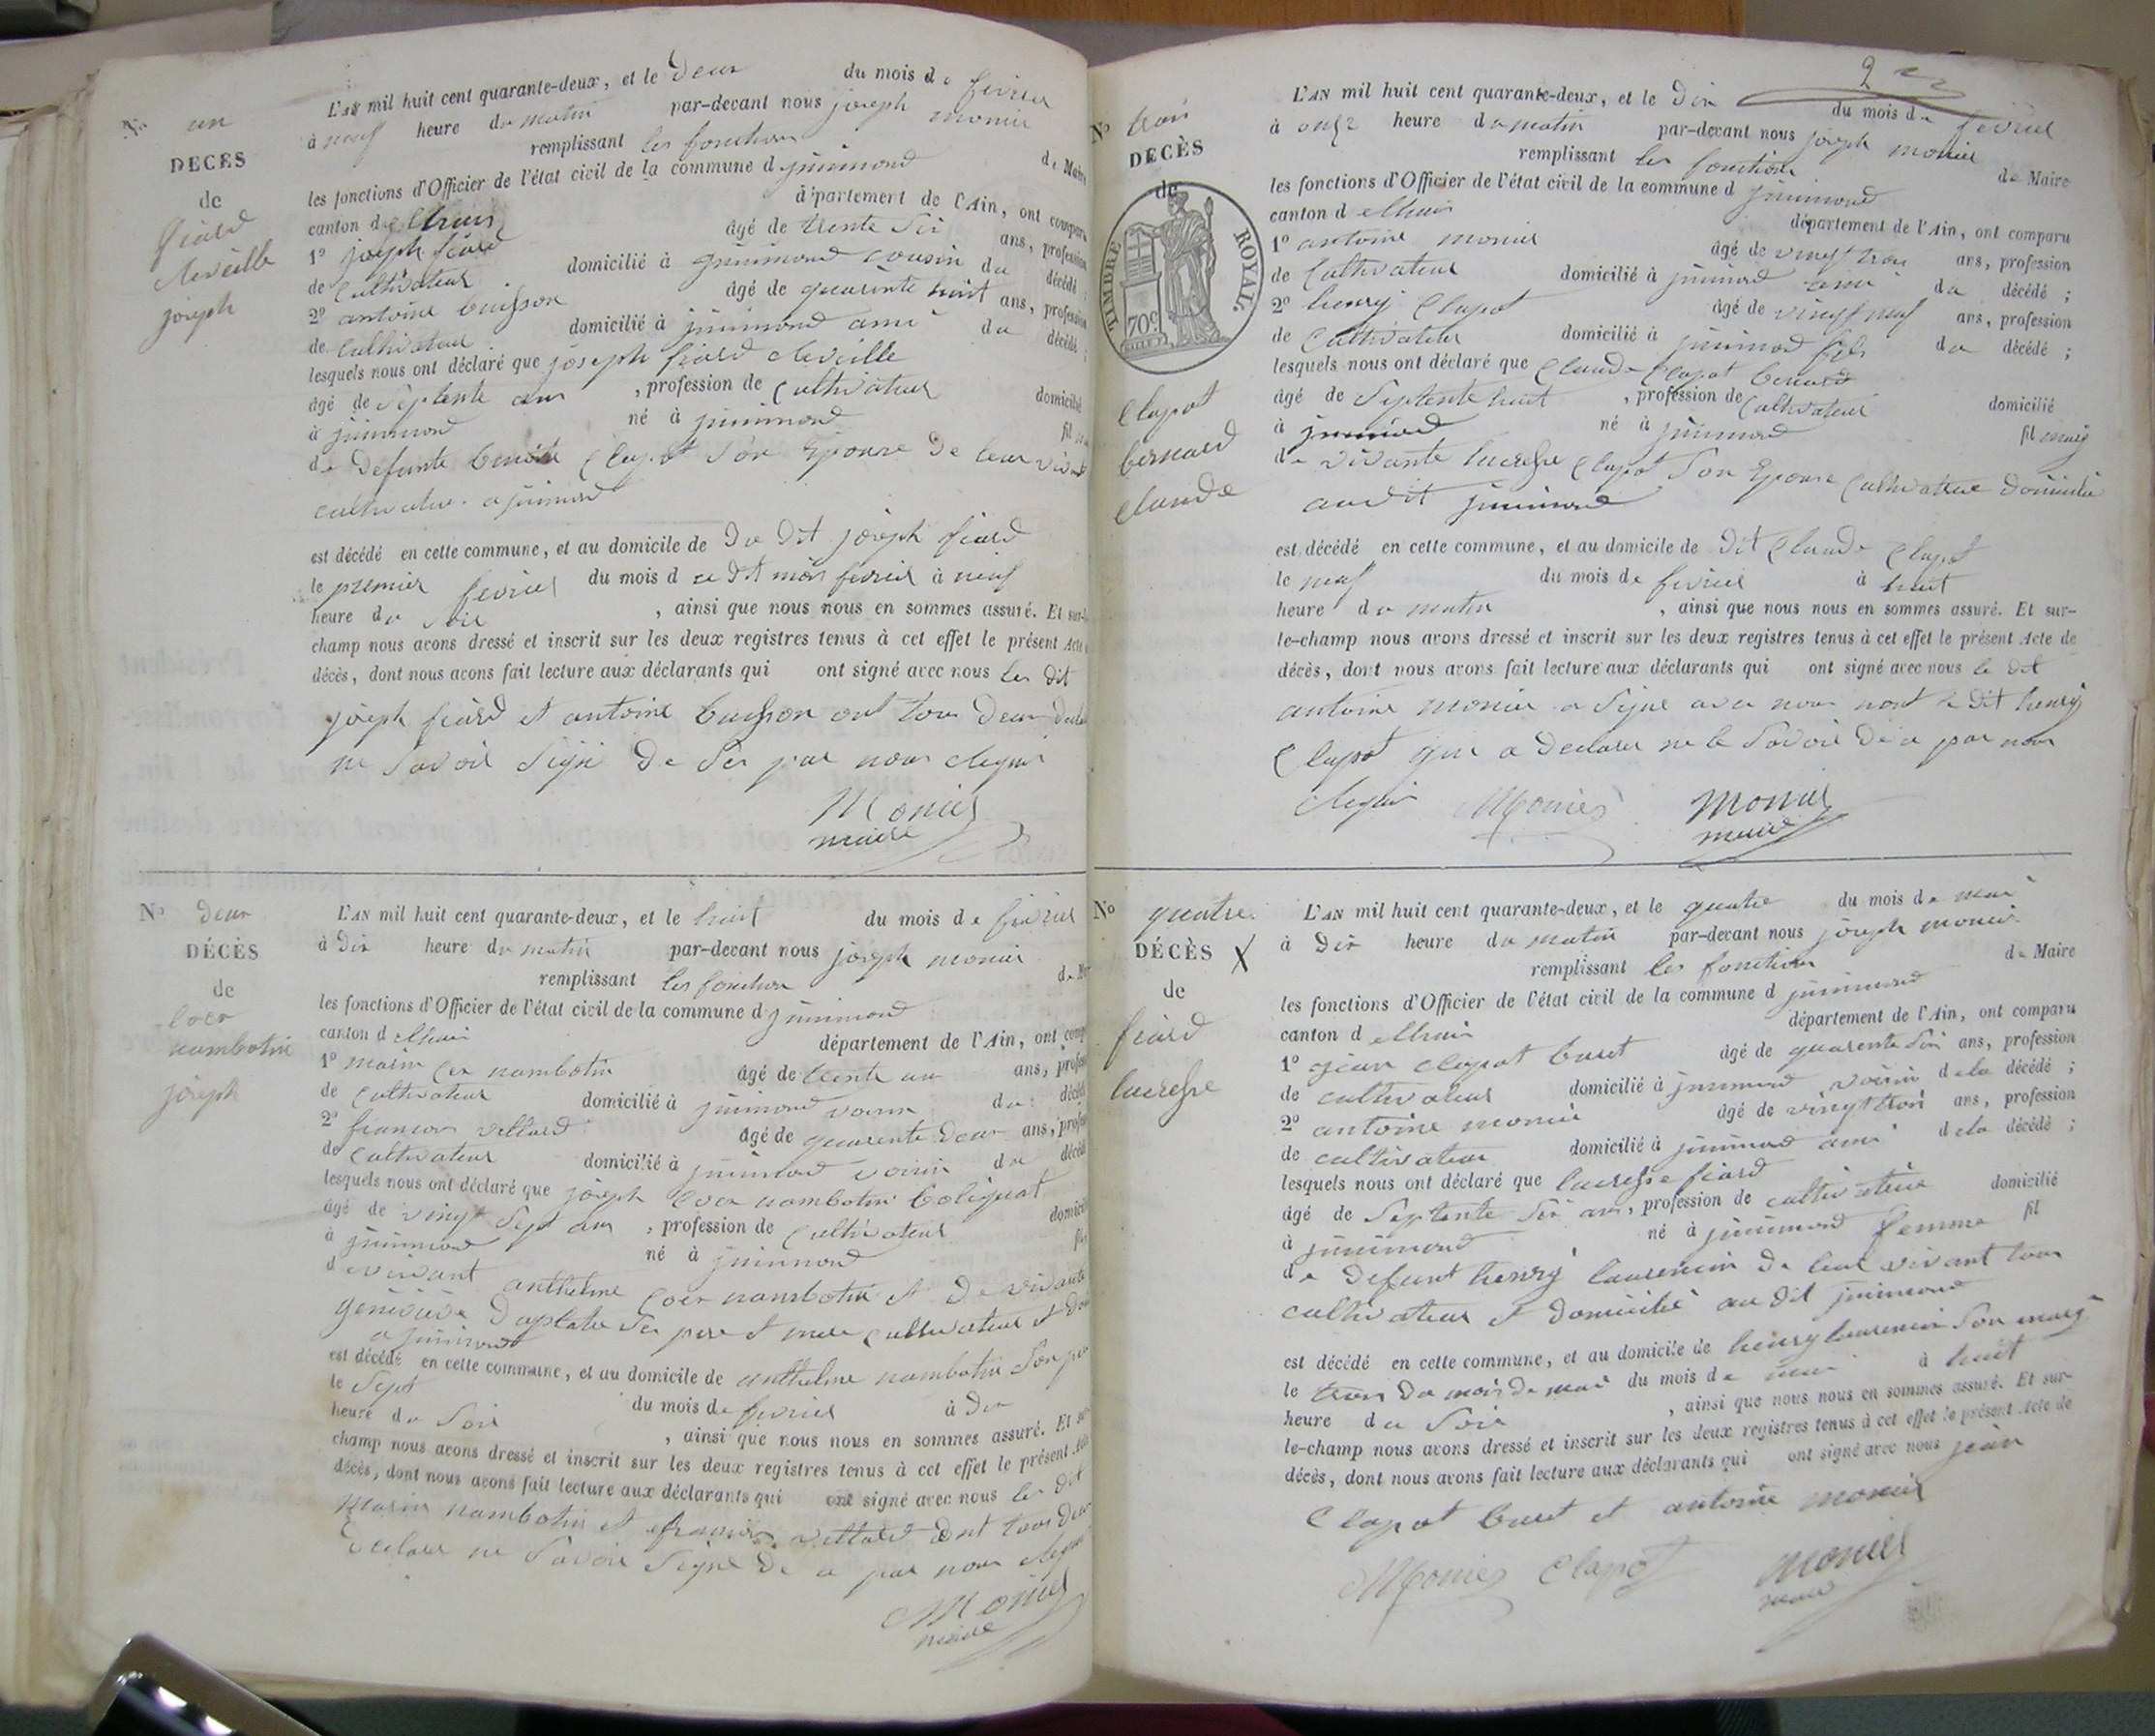 N° un
DECÈS
de
fiard
Merveille
joseph
L'AN mil huit cent quarante-deux, et le deux du mois de fevrier
à neuf heure du matin par-devant nous joseph monier
remplissant les fonction de Maire
les fonctions d'Officier de l'état civil de la commune d jujurieux
canton d
département de l'Ain, ont comparu
1° joseph fiard âgé de trente six ans, profession
de cultivateur domicilié à cousin du décédé ;
2° antoine buisson âgé de quarante huit ans, profession
de cultivateur domicilié à ami du décédé ;
lesquels nous ont déclaré que joseph fiard
âgé de septente ans , profession de cultivateur domicilié
à né à fil
de defunte Clapot son Epouse de leur vivant
cultivateur a
est décédé en cette commune, et au domicile de du dit joseph fiard
le premier fevrier du mois d ce dit mois fevrier à neuf
heure du soir , ainsi que nous nous en sommes assuré. Et sur-le-
champ nous avons dressé et inscrit sur les deux registres tenus à cet effet le présent Acte
décès, dont nous avons fait lecture aux déclarants qui ont signé avec nous les dit
joseph fiard et antoine buisson ont tous deux
ne savoir signe de ser par nous
Monier
maire
N° deux
DÉCÈS
de
nambotin
joseph
L'AN mil huit cent quarante-deux, et le huit du mois de fevrier
à dix heure du matin par-devant nous joseph monier
remplissant les fonction
les fonctions d'Officier de l'état civil de la commune d
canton d
département de l'Ain, ont
1° marin nambotin âgé de trente un ans,
de cultivateur domicilié à voisin du
2° francois villard âgé de quarente deux ans,
de cultivateur domicilié à voisin du
lesquels nous ont déclaré que joseph nambotin
âgé de vingt sept ans , profession de cultivateur
à né à
de vivant anthelme nambotin et de vivante
ser pere et mere cultivateur et
est décédé en cette commune, et au domicile de anthelme nambotin son
le sept du mois de fevrier à dix
heure du soir , ainsi que nous nous en sommes assuré. Et
champ nous avons dressé et inscrit sur les deux registres tenus à cet effet le présent
décès, dont nous avons fait lecture aux déclarants qui ont signé avec nous les dit
marin nambotin et francois villard ont tous deux
declare ne savoir signe de a par nous
Monier
maire
2
N° trois
DÉCÈS
de
TIMBRE ROYAL
70c
Clapot
bernard
claude
L'AN mil huit cent quarante-deux, et le dix du mois de fevrier
à onze heure du matin par-devant nous joseph monier
remplissant les fonction de Maire
les fonctions d'Officier de l'état civil de la commune d
canton d
département de l'Ain, ont comparu
1° antoine monier âgé de vingt trois ans, profession
de Cultivateur domicilié à ami du décédé ;
2° henry Clapot âgé de vingt neuf ans, profession
de Cultivateur domicilié à fils du décédé ;
lesquels nous ont déclaré que Claude Clapot bernard
âgé de septente huit , profession de Cultivateur domicilié
à né à fil
de vivante lucresse Clapot son Epouse Cultivateur
audit
est décédé en cette commune, et au domicile de dit Claude Clapot
le neuf du mois de fevrier à huit
heure du matin , ainsi que nous nous en sommes assuré. Et sur-
le-champ nous avons dressé et inscrit sur les deux registres tenus à cet effet le présent Acte de
décès, dont nous avons fait lecture aux déclarants qui ont signé avec nous le dit
antoine monier a signe avec nous nont le dit henry
Clapot qui a declarer ne le savoir de a par nous
Monier Monier
maire
N° quatre
DÉCÈS X
de
fiard
lucresse
L'AN mil huit cent quarante-deux, et le quatre du mois de mai
à dix heure du matin par-devant nous joseph monier
remplissant les fonction de Maire
les fonctions d'Officier de l'état civil de la commune d
canton d
département de l'Ain, ont comparu
1° jean clapot buret âgé de quarente six ans, profession
de cultivateur domicilié à voisin de la décédé ;
2° antoine monier âgé de vingt trois ans, profession
de cultivateur domicilié à ami de la décédé ;
lesquels nous ont déclaré que lucresse fiard
âgé de septente six ans, profession de domicilié
à né à femme fil
de defunt henry laurencin de leur vivant tous
cultivateur et domicilié au dit
est décédé en cette commune, et au domicile de henry laurencin son
le trois du mois de mai du mois de mai à huit
heure du soir , ainsi que nous nous en sommes assuré. Et sur-
le-champ nous avons dressé et inscrit sur les deux registres tenus à cet effet le présent Acte de
décès, dont nous avons fait lecture aux déclarants qui ont signé avec nous jean
clapot buret et antoine monier
Monier Clapot Monier
maire